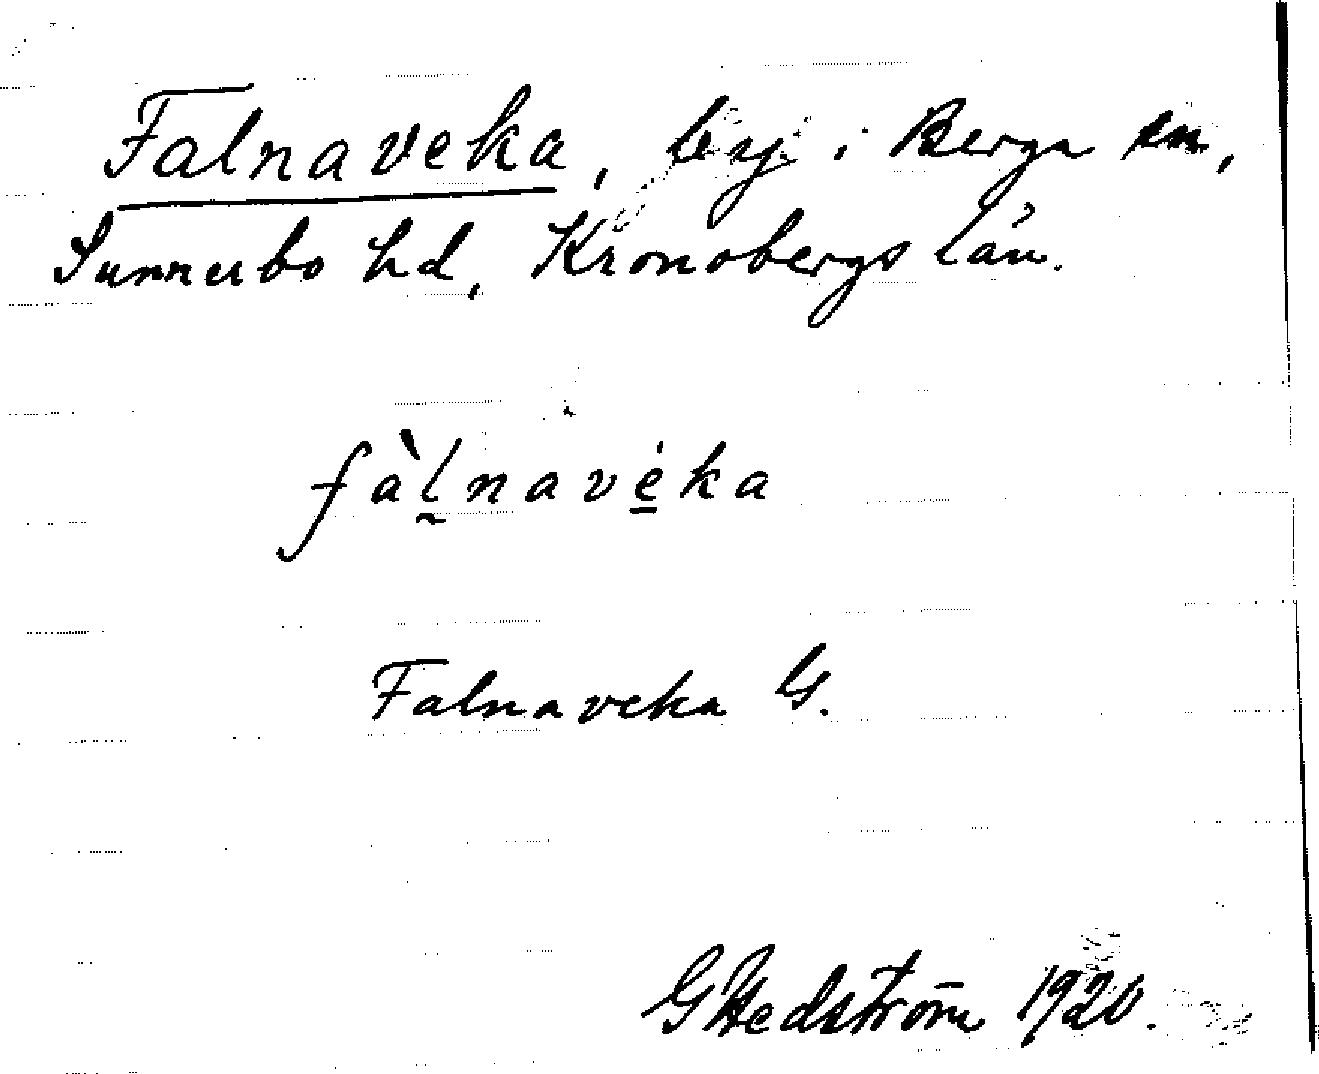 Falnaveka, by i Berga sn,
Sunnerbo hd, Kronobergs län.
fàl̰navė̱ka
Falnaveka G.
G Hedström 1920.